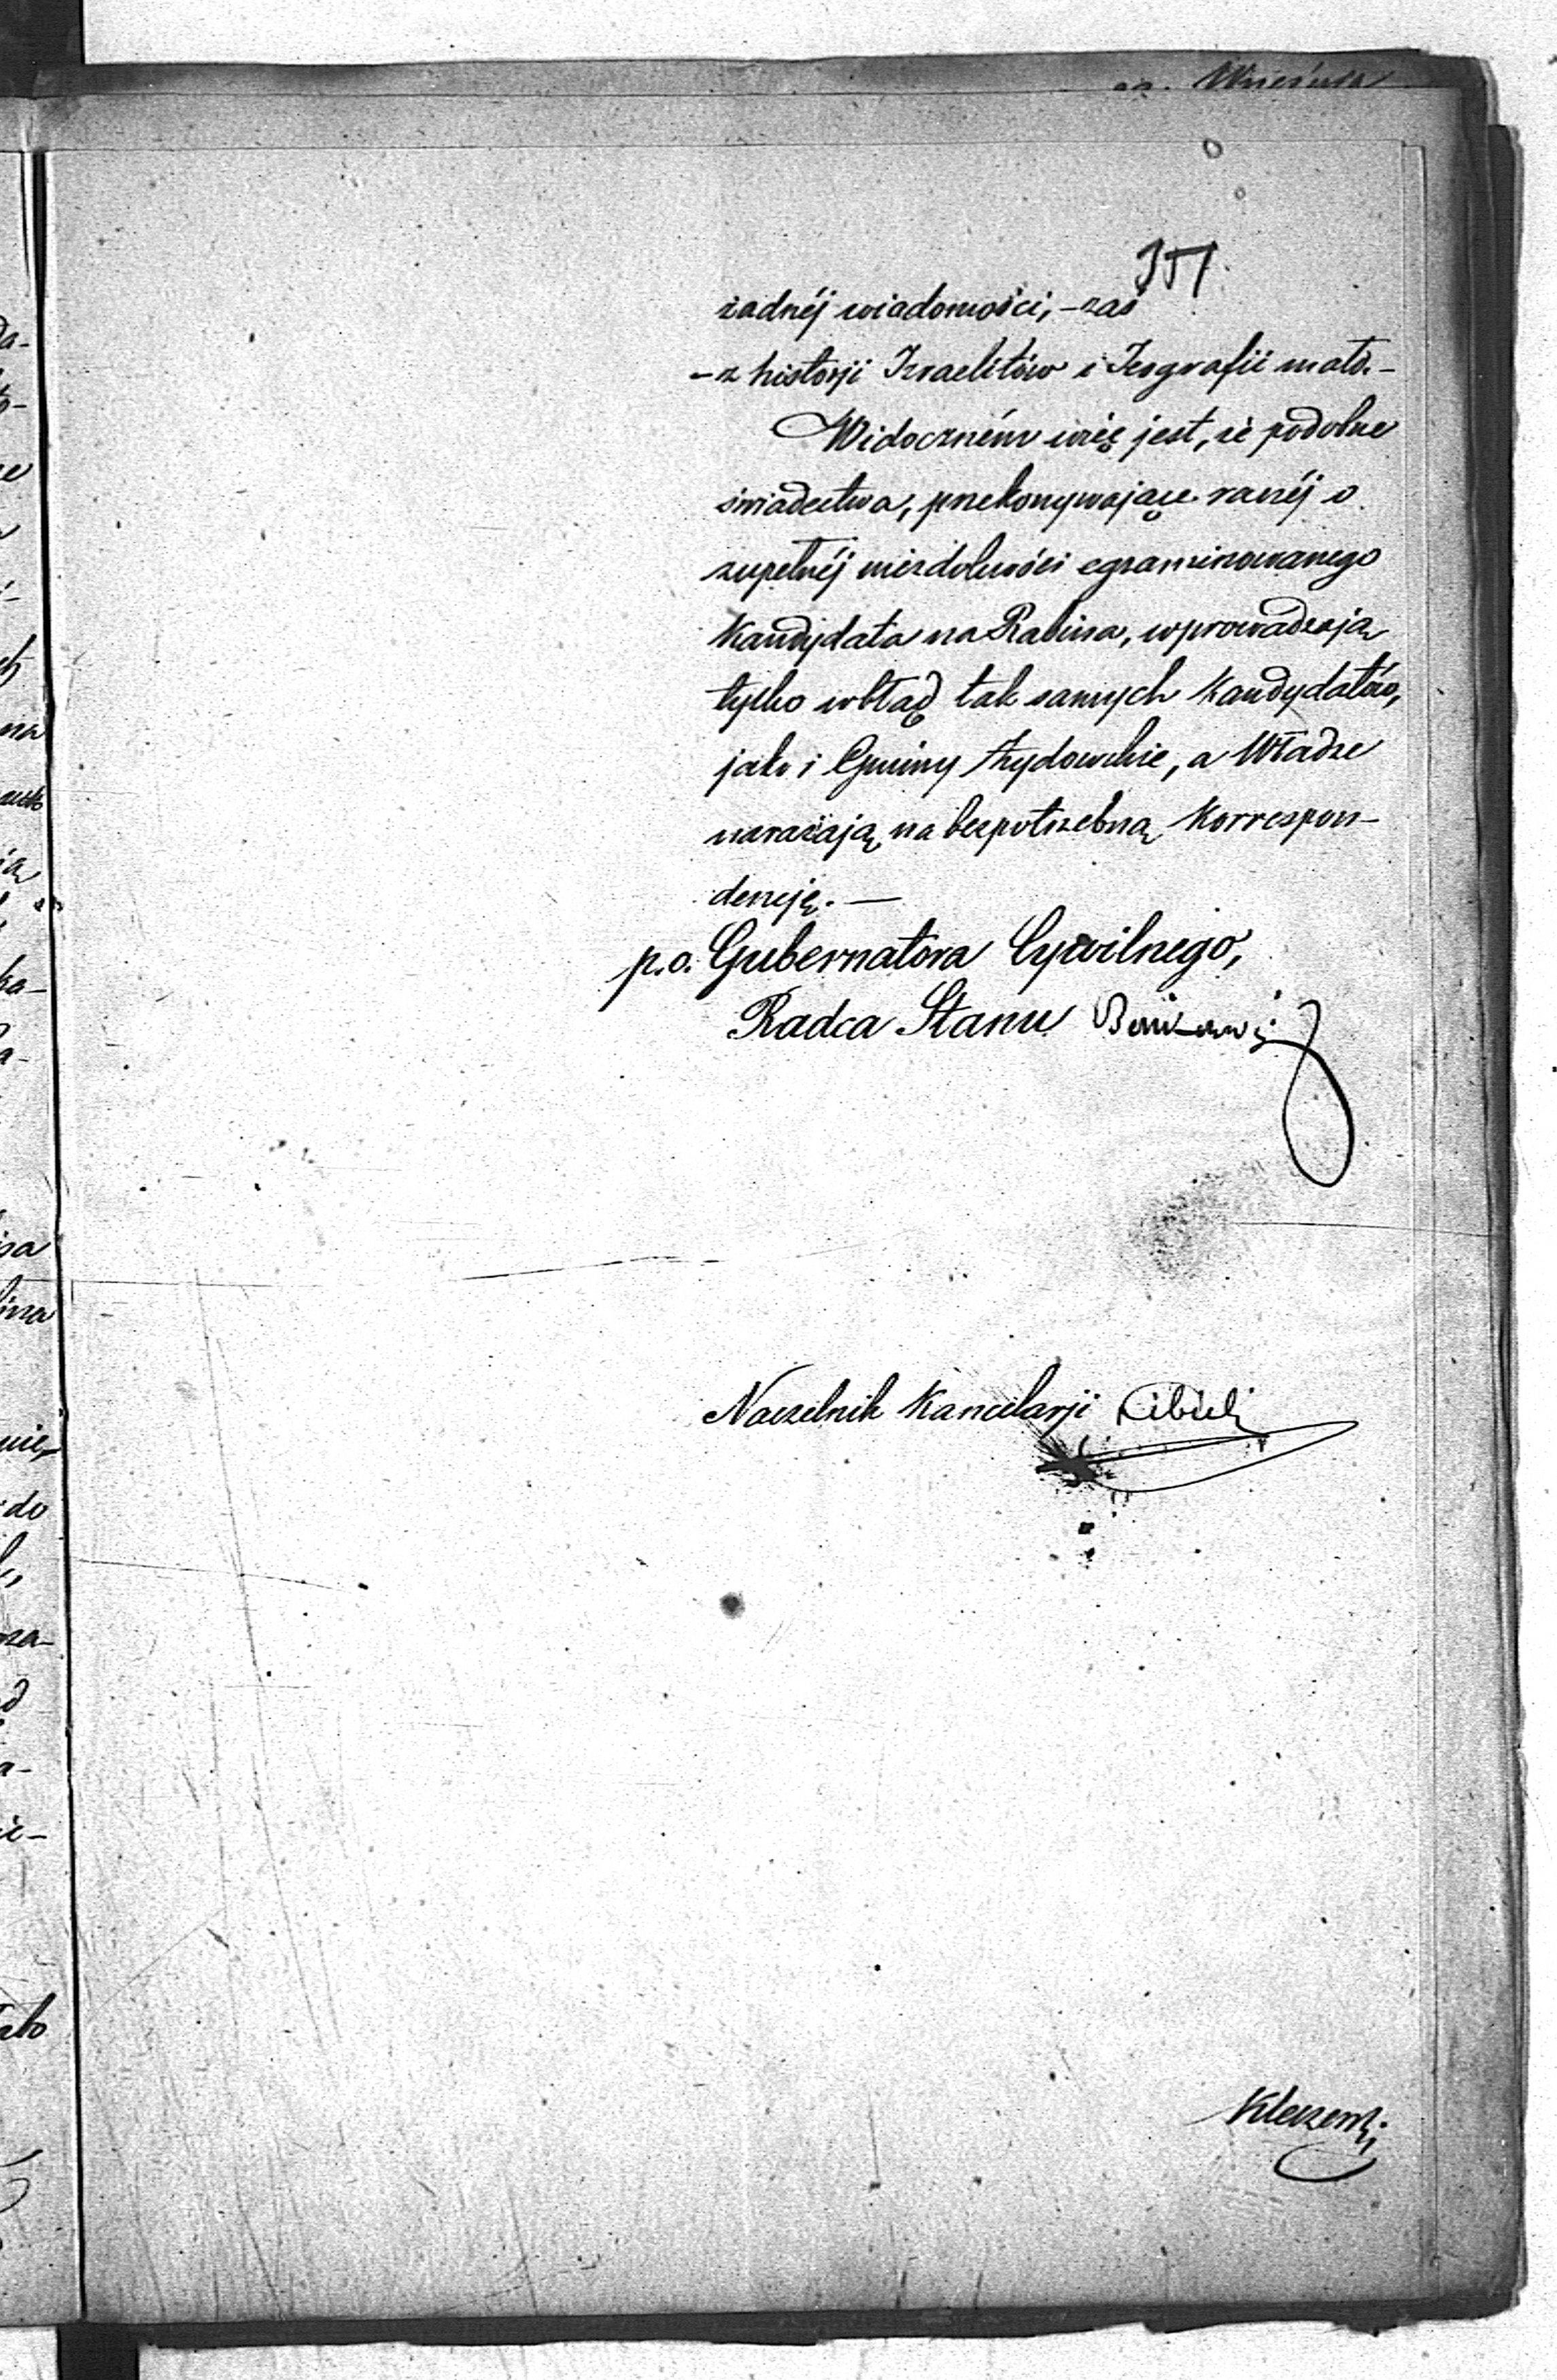 Września
351.
żadnéj wiadomości, – zaś
– z historji Izraelitów i Jeografii mało. –
Widoczném więc jest, że podobne
świadectwa, przekonywające raczéj o
zupełnéj niezdolności egzaminowanego
Kandydata na Rabina, wprowadzają
tylko w błąd tak samych Kandydatów,
jako i Gminy Żydowskie, a Władze
narażają na bezpotrzebną Korrespon-
dencję. —
p.o. Gubernatora Cywilnego,
Radca Stanu
Naczelnik Kancelarji